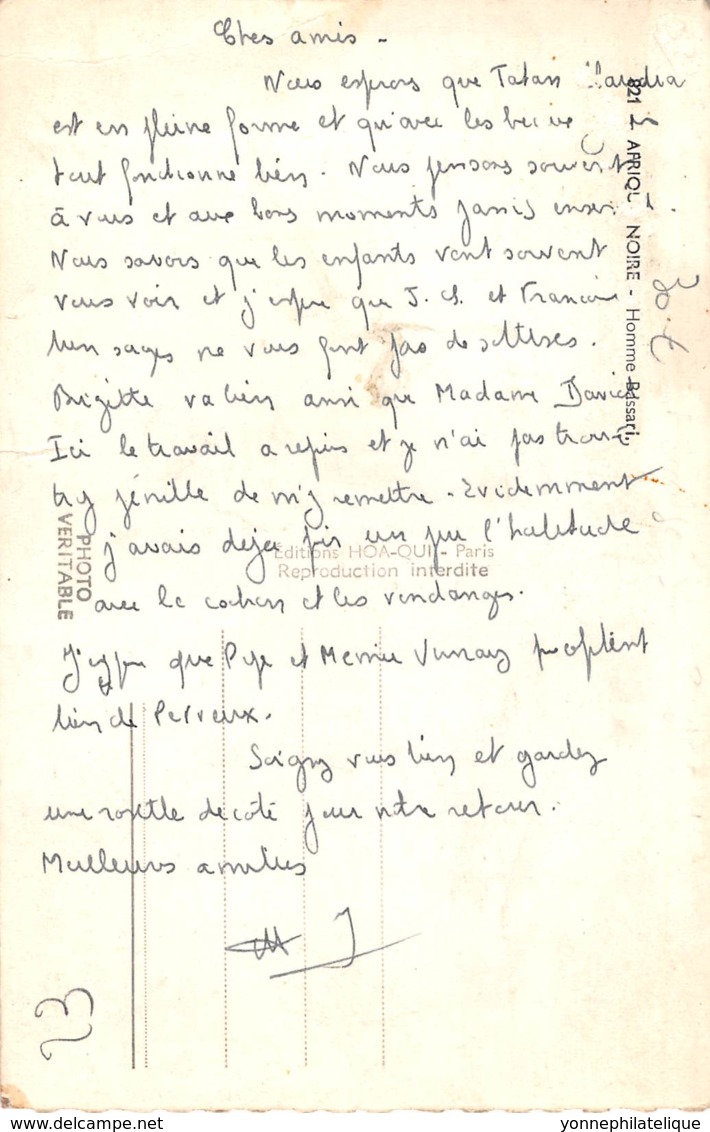 Chers amis -
Nous espérons que Tatan
est en pleine forme et qu'avec les
tout fonctionne bien. Nous pensons souvent
à vous et aux bons moments passés
Nous savons que les enfants vont souvent
vous voir et j'espère que J. et
bien sages ne vous font pas de sottises.
Brigitte va bien ainsi que Madame David
Ici le travail a repris et je n'ai pas trouvé
très pénible de m'y remettre. Evidemment
j'avais déjà pris un peu l'habitude
avec le cochon et les vendanges.
J'espère que Pepe et Memie profitent
bien de Perreux.
Soignez vous bien et gardez
une rosette de côté pour notre retour.
Meilleures amitiés
23
821 - AFRIQUE NOIRE - Homme Bassari,
PHOTO
VERITABLE
Editions HOA-QUI - Paris
Reproduction interdite
yonnephilatelique